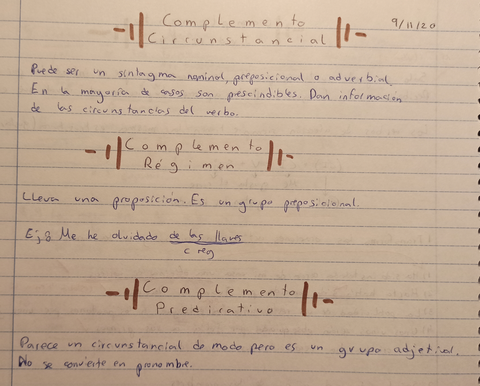 Complemento
Circunstancial
9/11/20
Puede ser un sintagma nominal, preposicional o adverbial.
En la mayoría de casos son prescindibles. Dan información
de las circunstancias del verbo.
Complemento
Régimen
Lleva una proposición. Es un grupo preposicional.
Ej: Me he olvidado de las llaves
C reg
Complemento
Predicativo
Parece un circunstancial de modo pero es un grupo adjetival.
No se convierte en pronombre.